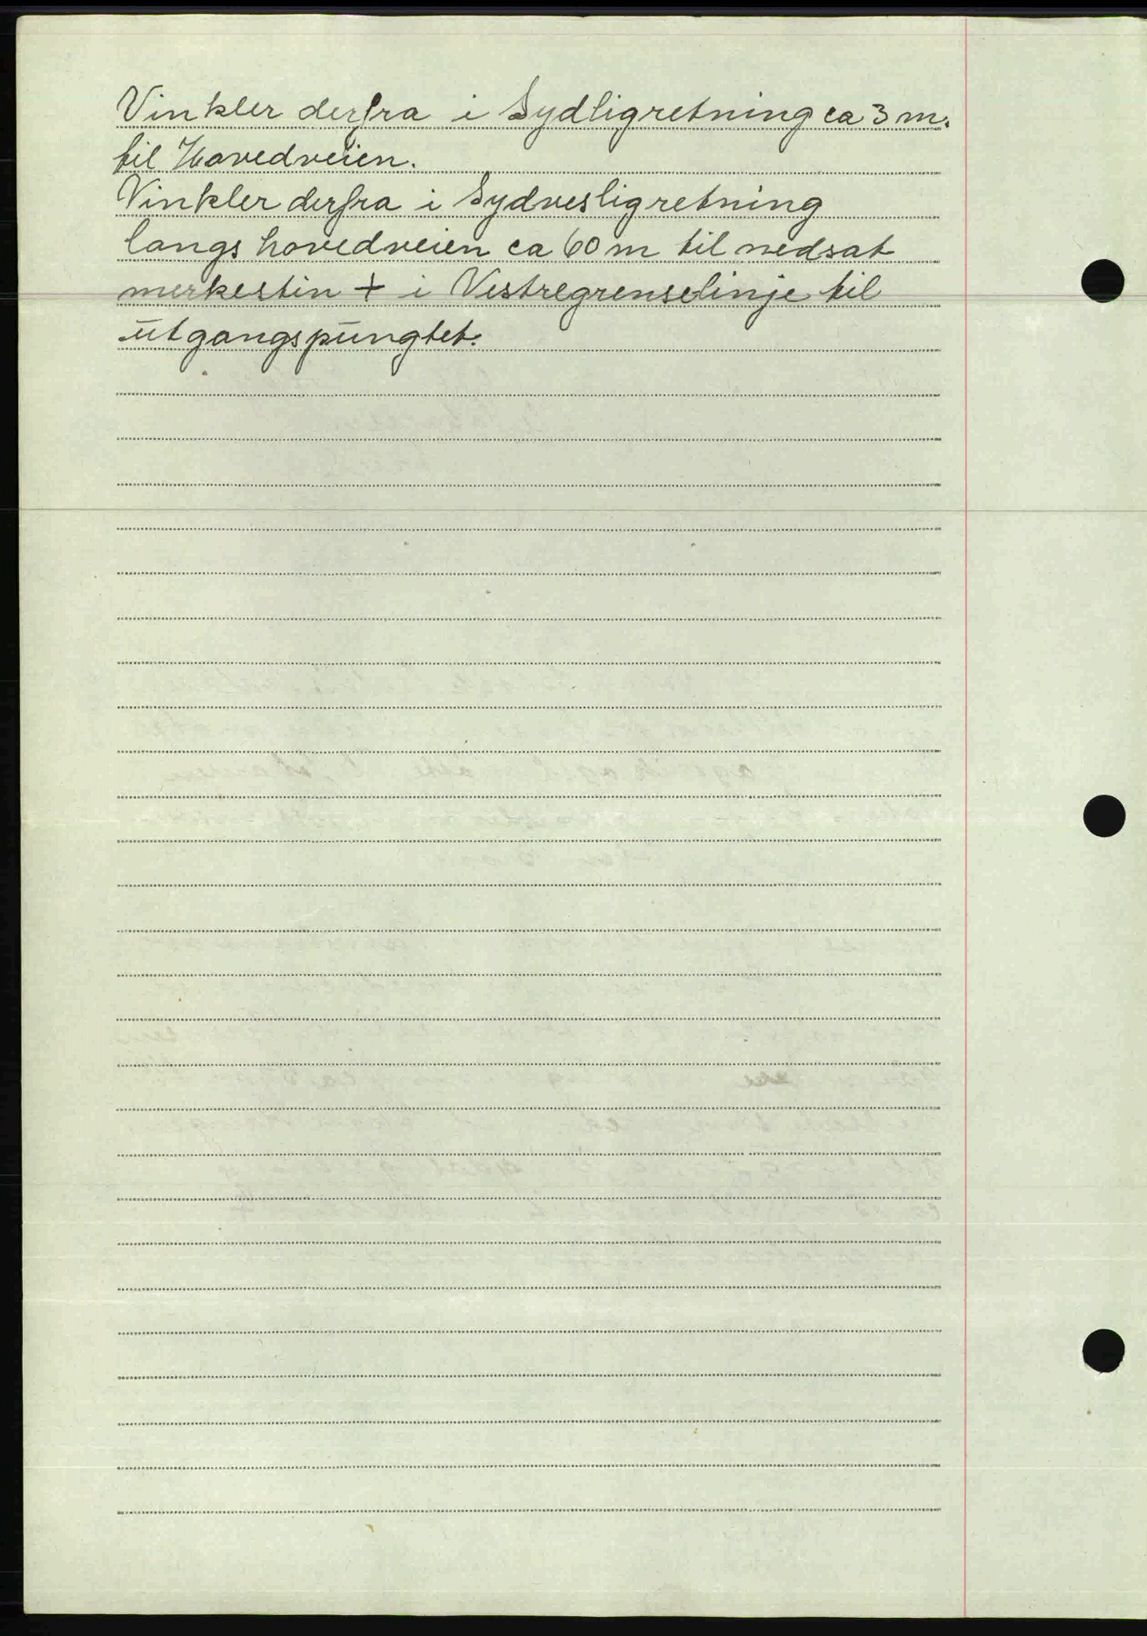 Vinkler derfra i Sydligretning ca 3 m.
til Hovedveien.
Vinkler derfra i Sydvesligretning
langs hovedveien ca 60 m til nedsat
merkestin + i Vestregrenselinje til
utgangspungtet.